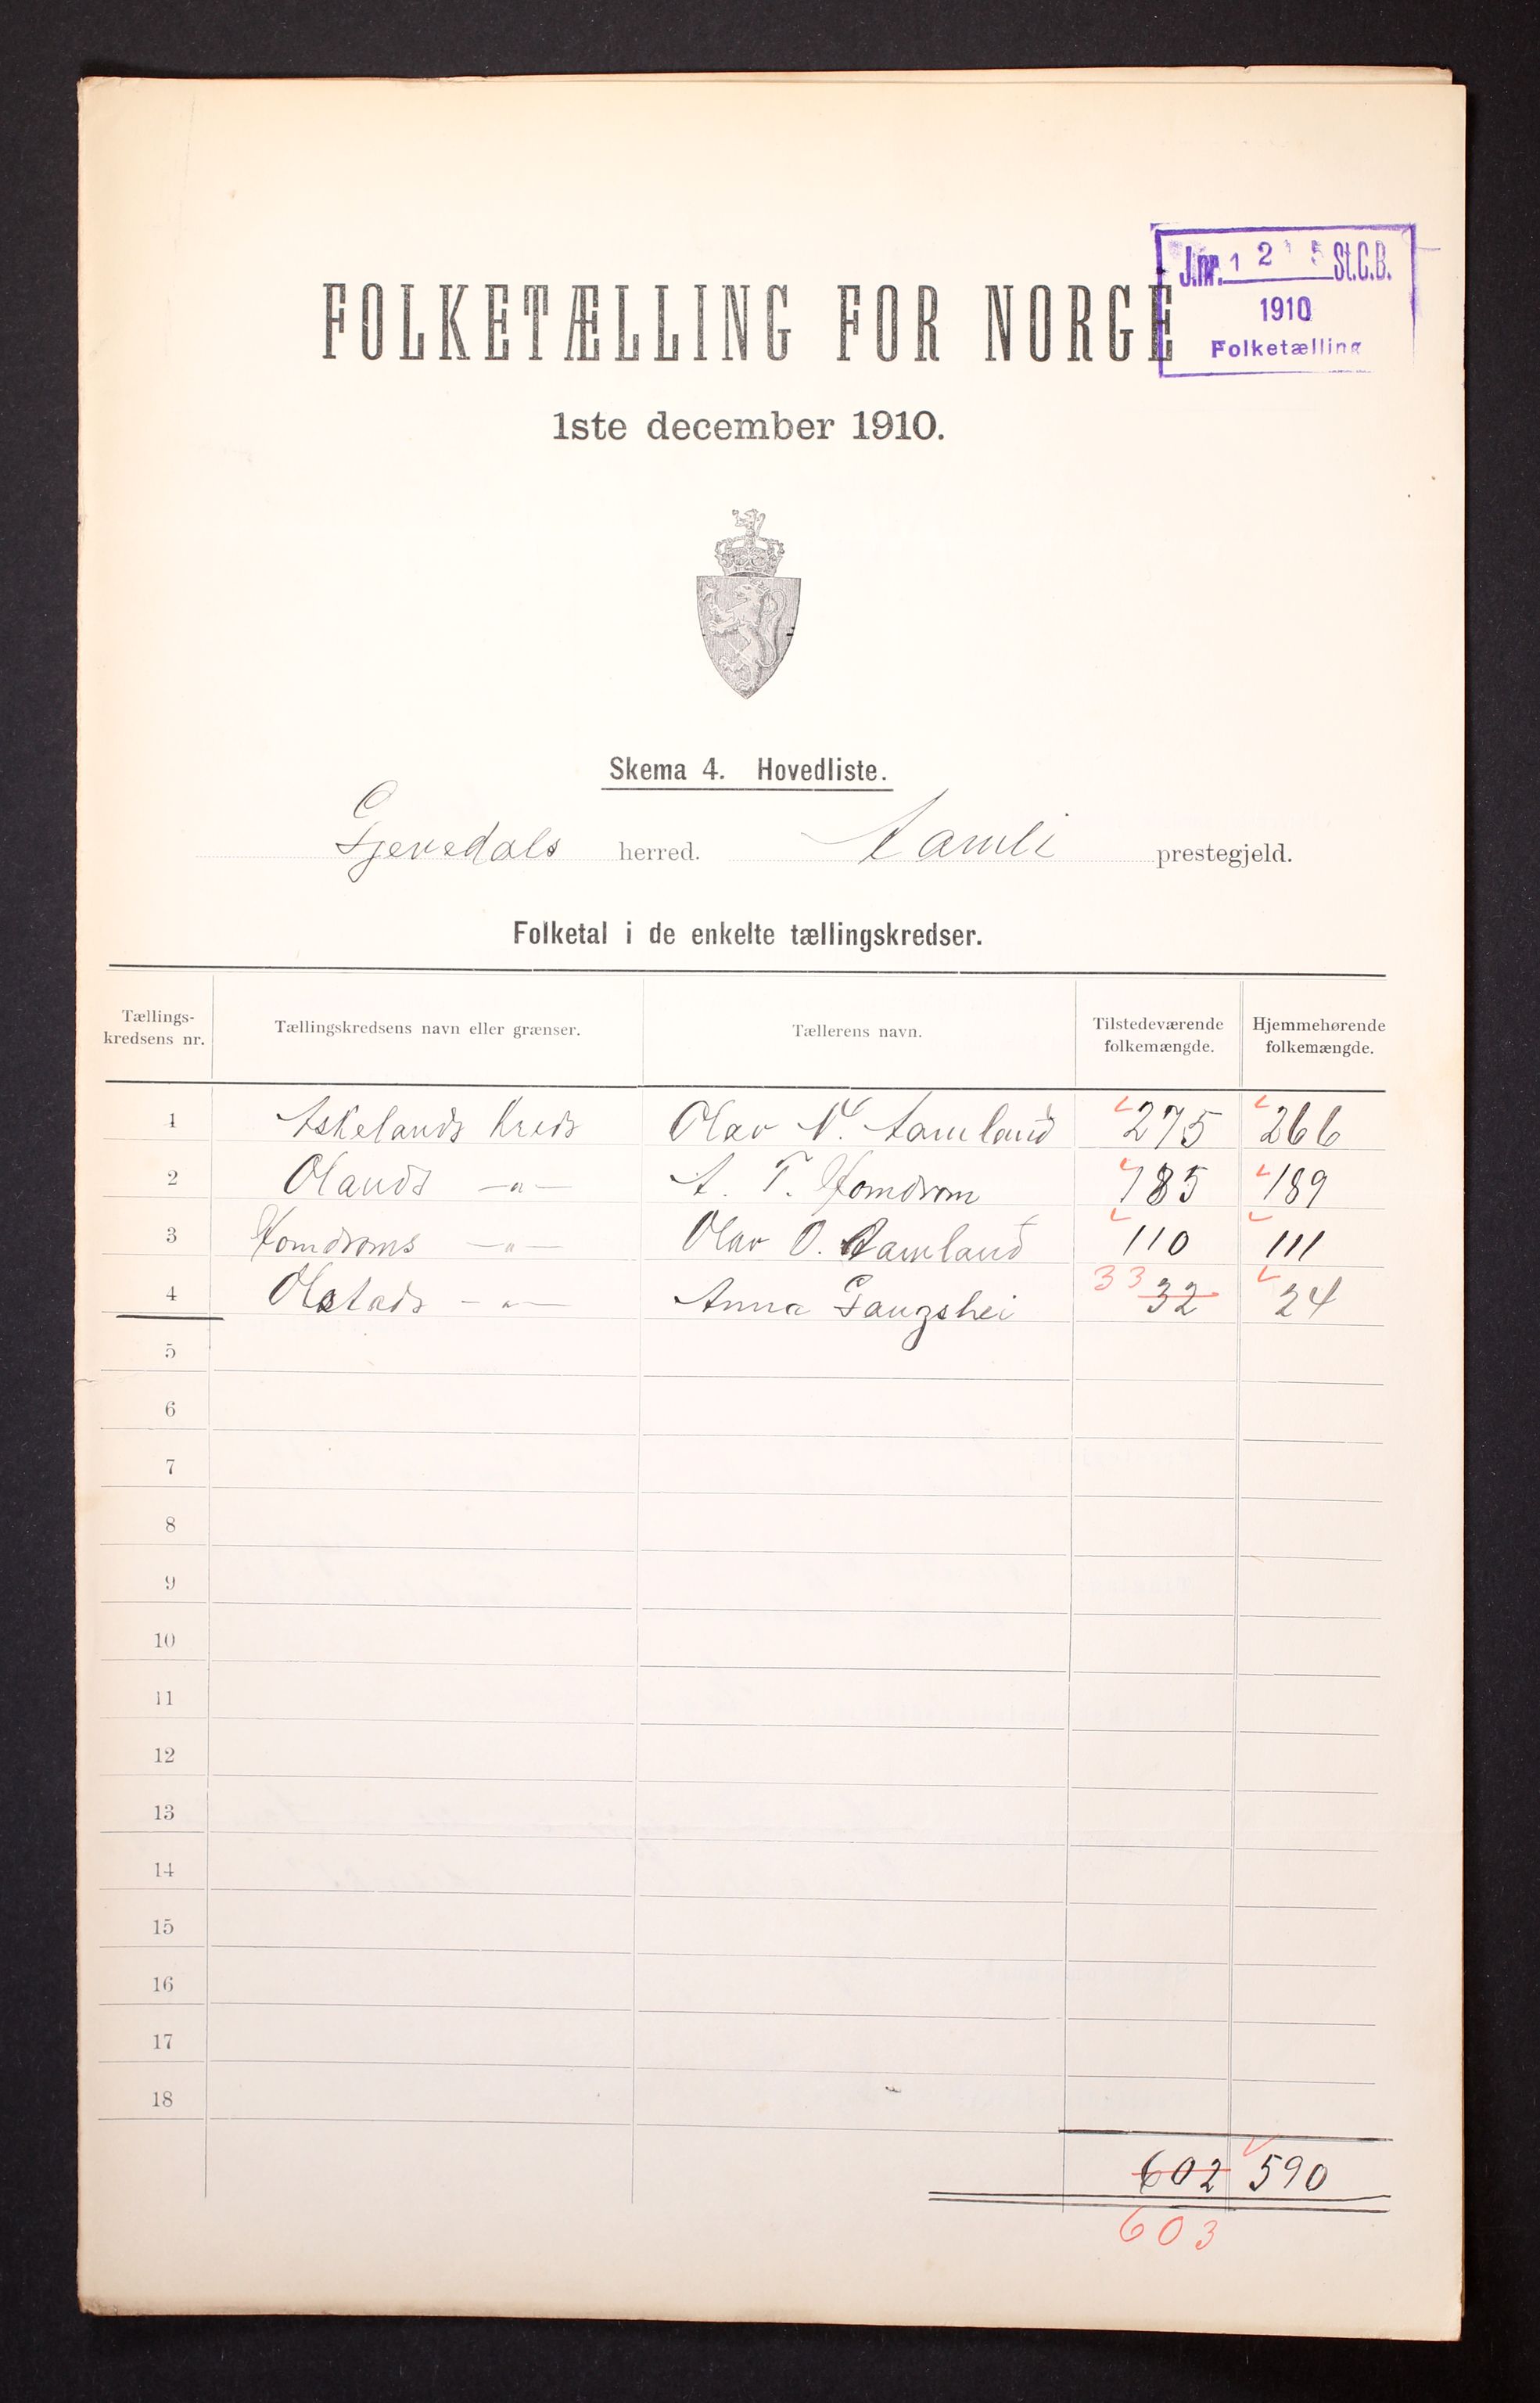 J.nr. 1 2 5 St.C.B.
1910
Folketælling
FOLKETÆLLING FOR NORGE
1ste december 1910.
Skema 4. Hovedliste.
Gjevedals herred. Aamli prestegjeld.
Folketal i de enkelte tællingskredser.
Tællings-kredsens nr. Tællingskredsens navn eller grænser. Tællerens navn. Tilstedeværende folkemængde. Hjemmehørende folkemængde.
1 Askelands Kreds Olav N. Aamland 275 266
2 Olands -"- A. T. Homdrom 185 189
3 Homdroms -"- Olav O. Aamland 110 111
4 Olstads -"- Anna Gaugshei 33 32 24
5
6
7
8
9
10
11
12
13
14
15
16
17
18
602 590
603